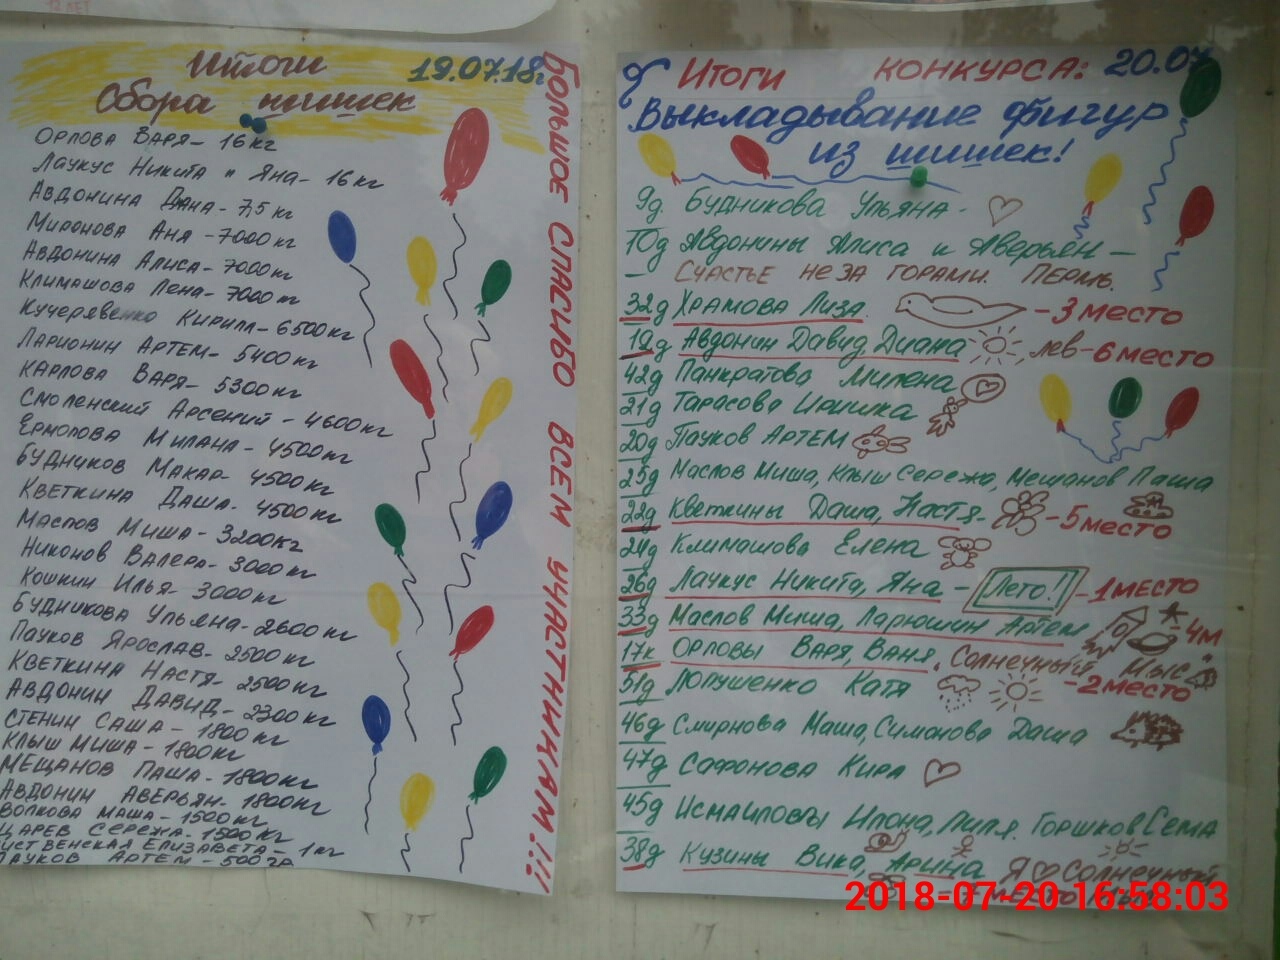 Итоги 19.07.18г
Сбора шишек
Орлова Варя - 16 кг
Лаукус Никита и Яна - 16 кг
Авдонина Дана - 7,5 кг
Миронова Аня - 7000 кг
Авдонина Алиса - 7000 кг
Климашова Лена - 7000 кг
Кучерявенко Кирилл - 6500 кг
Ларионин Артем - 5400 кг
Карлова Варя - 5300 кг
Смоленский Арсений - 4600 кг
Ермолова Милана - 4500 кг
Будников Макар - 4500 кг
Кветкина Даша - 4500 кг
Маслов Миша - 3200 кг
Никонов Валера - 3000 кг
Кошкин Илья - 3000 кг
Будникова Ульяна - 2600 кг
Пауков Ярослав - 2500 кг
Кветкина Настя - 2500 кг
Авдонин Давид - 2300 кг
Стенин Саша - 1800 кг
Клыш Миша - 1800 кг
Мещанов Паша - 1800 кг
Авдонин Аверьян - 1800 кг
Волкова Маша - 1500 кг
Царев Сережа - 1500 кг
Елизавета - 1 кг
Пауков Артем - 500 гр
Большое спасибо всем участникам!!!
Итоги конкурса: 20.07
Выкладывание фигур
из шишек!
9д. Будникова Ульяна -
10д Авдонины Алиса и Аверьян -
- Счастье не за горами. Пермь.
32д Храмова Лиза. - 3 место
19д Авдонин Давид, Диана лев - 6 место
42д Панкратова Милена
21д Тарасова Иришка
20д Пауков Артем
25д Маслов Миша, Клыш Сережа, Мещанов Паша
22д Кветкины Даша, Настя - - 5 место
24д Климашова Елена
26д Лаукус Никита, Яна - Лето!! - 1 место
33д Маслов Миша, Ларюшин Артем - 4м
17к Орловы Варя, Ваня, Солнечный Мыс"
51д Лопушенко Катя - 2 место
46д Смирнова Маша, Симонова Даша
47д Сафонова Кира
45д Исмаиловы Илона, Лиля. Горшков Сема
38д Кузины Вика, Арина Я ♡ Солнечный
2018-07-20 16:58:03